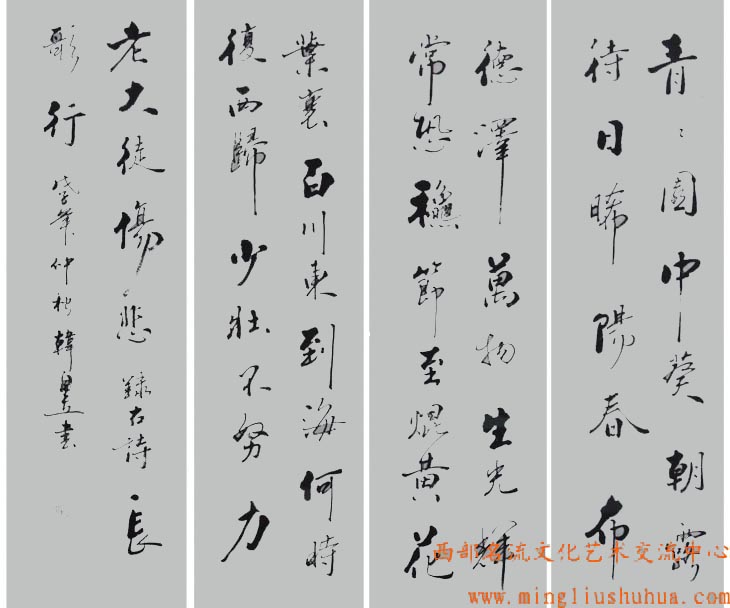 青〻園中葵朝露
待日晞陽春布
德澤萬物生光輝
常恐龝節至焜黃花
葉衰百川東到海何時
復西歸少壯不努力
老大徒傷悲錄古詩長
歌行仲秋韓書
西部名流文化艺术交流中心
www.mingliushuhua.com